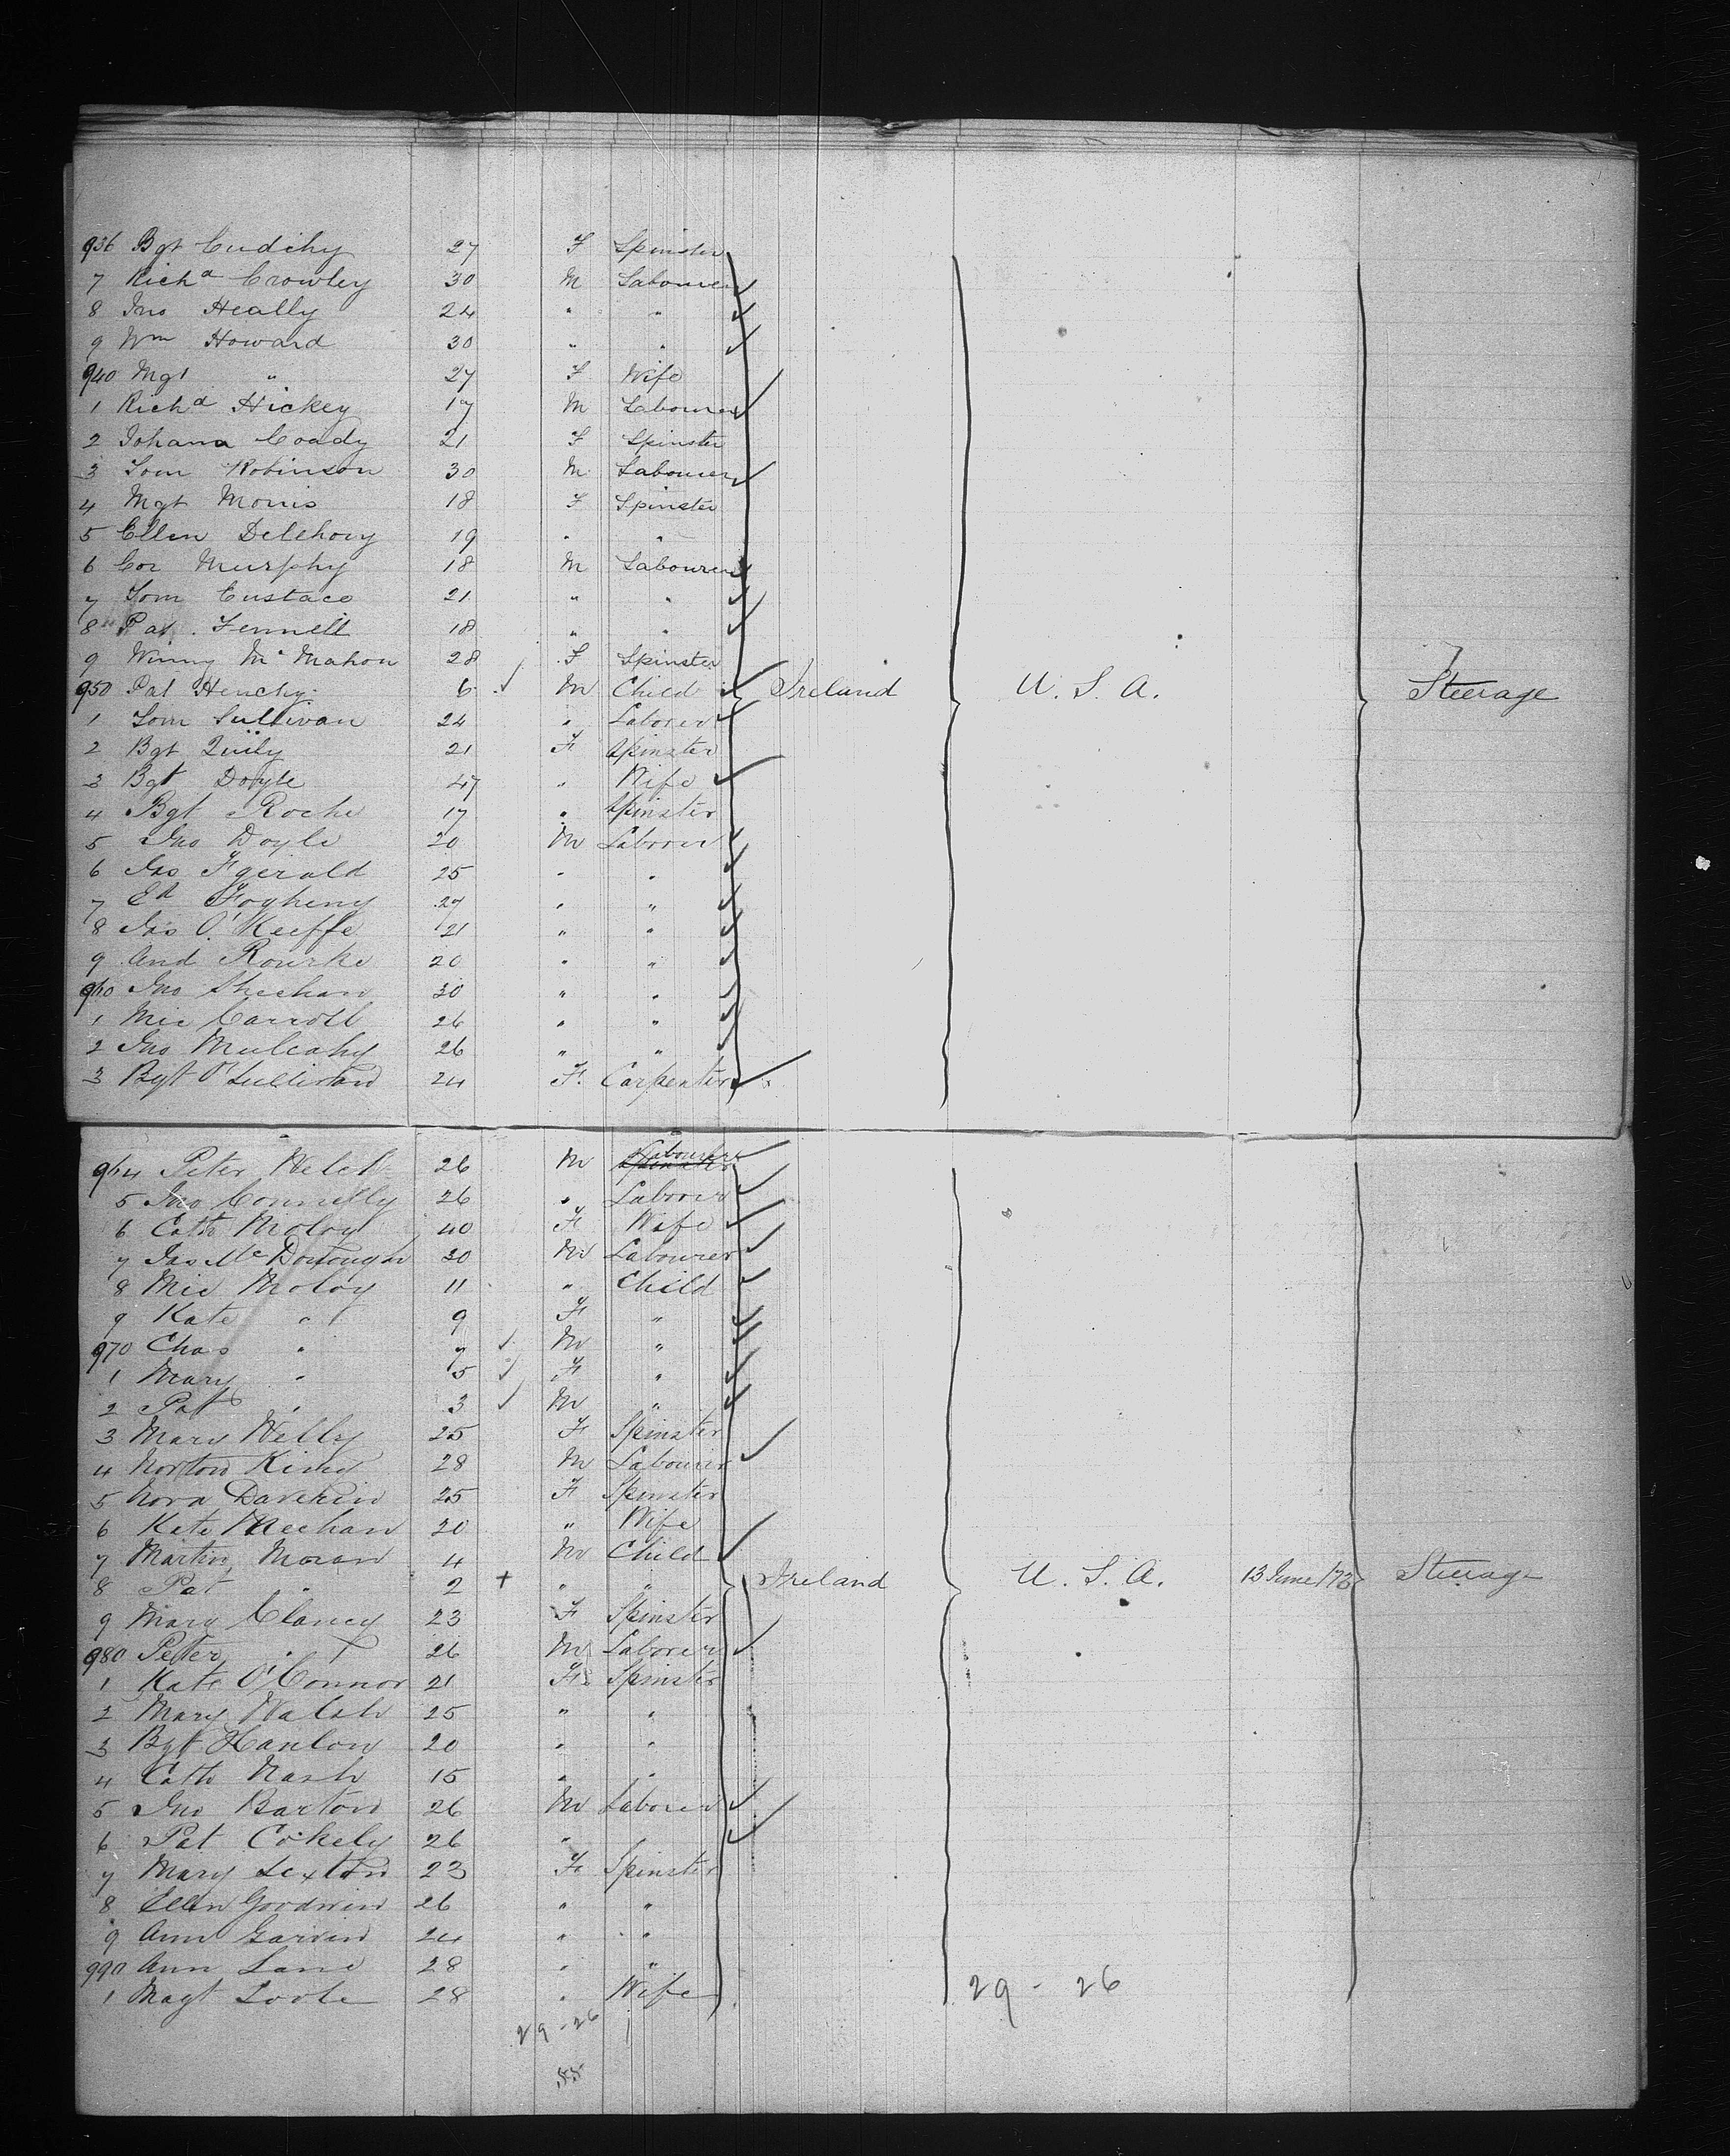 936 Bgt Cudihy 27 F Spinster
7 Richd Crowley 30 M Labourer
8 Jno Heally 24 " "
9 Wm Howard 30 " "
940 Mgt " 27 F Wife
1 Richd Hickey 17 M Labourer
2 Johana Coady 21 F Spinster
3 Tom Robinson 30 M Labourer
4 Mgt Morris 18 F Spinster
5 Ellen Delehovy 19 " "
6 Cor Murphy 18 M Labourer
7 Tom Eustace 21 " "
8 Pat Fennell 18 " "
9 Winny McMahon 28 F Spinster
950 Pat Henchy 6 M Child Ireland U. S. A. Steerage
1 Tom Sullivan 24 " Laborer
2 Bgt Quily 21 F Spinster
3 Bgt Doyle 47 " Wife
4 Bgt Roche 17 " Spinster
5 Jno Doyle 20 M Laborer
6 Jas Fgerald 25 " "
7 Ed Fogheny 27 " "
8 Jas O'Keeffe 21 " "
9 And Rourke 20 " "
960 Jno Sheehan 30 " "
1 Mic Carroll 26 " "
2 Jno Mulcahy 26 " "
3 Bgt O'Sullivan 24 F. Carpenter
964 Peter Welch 26 M Labourer
5 Jno Connelly 26 " Laborer
6 Cath Moloy 40 F Wife
7 Jas McDonough 30 M Labourer
8 Mic Moloy 11 " Child
9 Kate " 9 F "
970 Chas " 7 M "
1 Mary " 5 F "
2 Pat " 3 M "
3 Mary Welby 25 F Spinster
4 Norton King 28 M Labourer
5 Nora Davekin 25 F Spinster
6 Kate Meehan 20 " Wife
7 Martin Moran 4 M Child
8 Pat " 2 + " " Ireland U. S. A. 13 June /73 Steerage
9 Mary Clancy 23 F Spinster
980 Peter " 26 M Laborer
1 Kate O'Connor 21 F Spinster
2 Mary Walsh 25 " "
3 Bgt Hanlon 20 " "
4 Cath Nash 15 " "
5 Jno Barton 26 M Laborer
6 Pat Cokely 26 " "
7 Mary Sexton 23 F Spinster
8 Ellen Goodwin 26 " "
9 Ann Garvin 24 " "
990 Ann Lane 28 " "
1 Magt Toole 28 " Wife
29 - 26
29 - 26 1
55